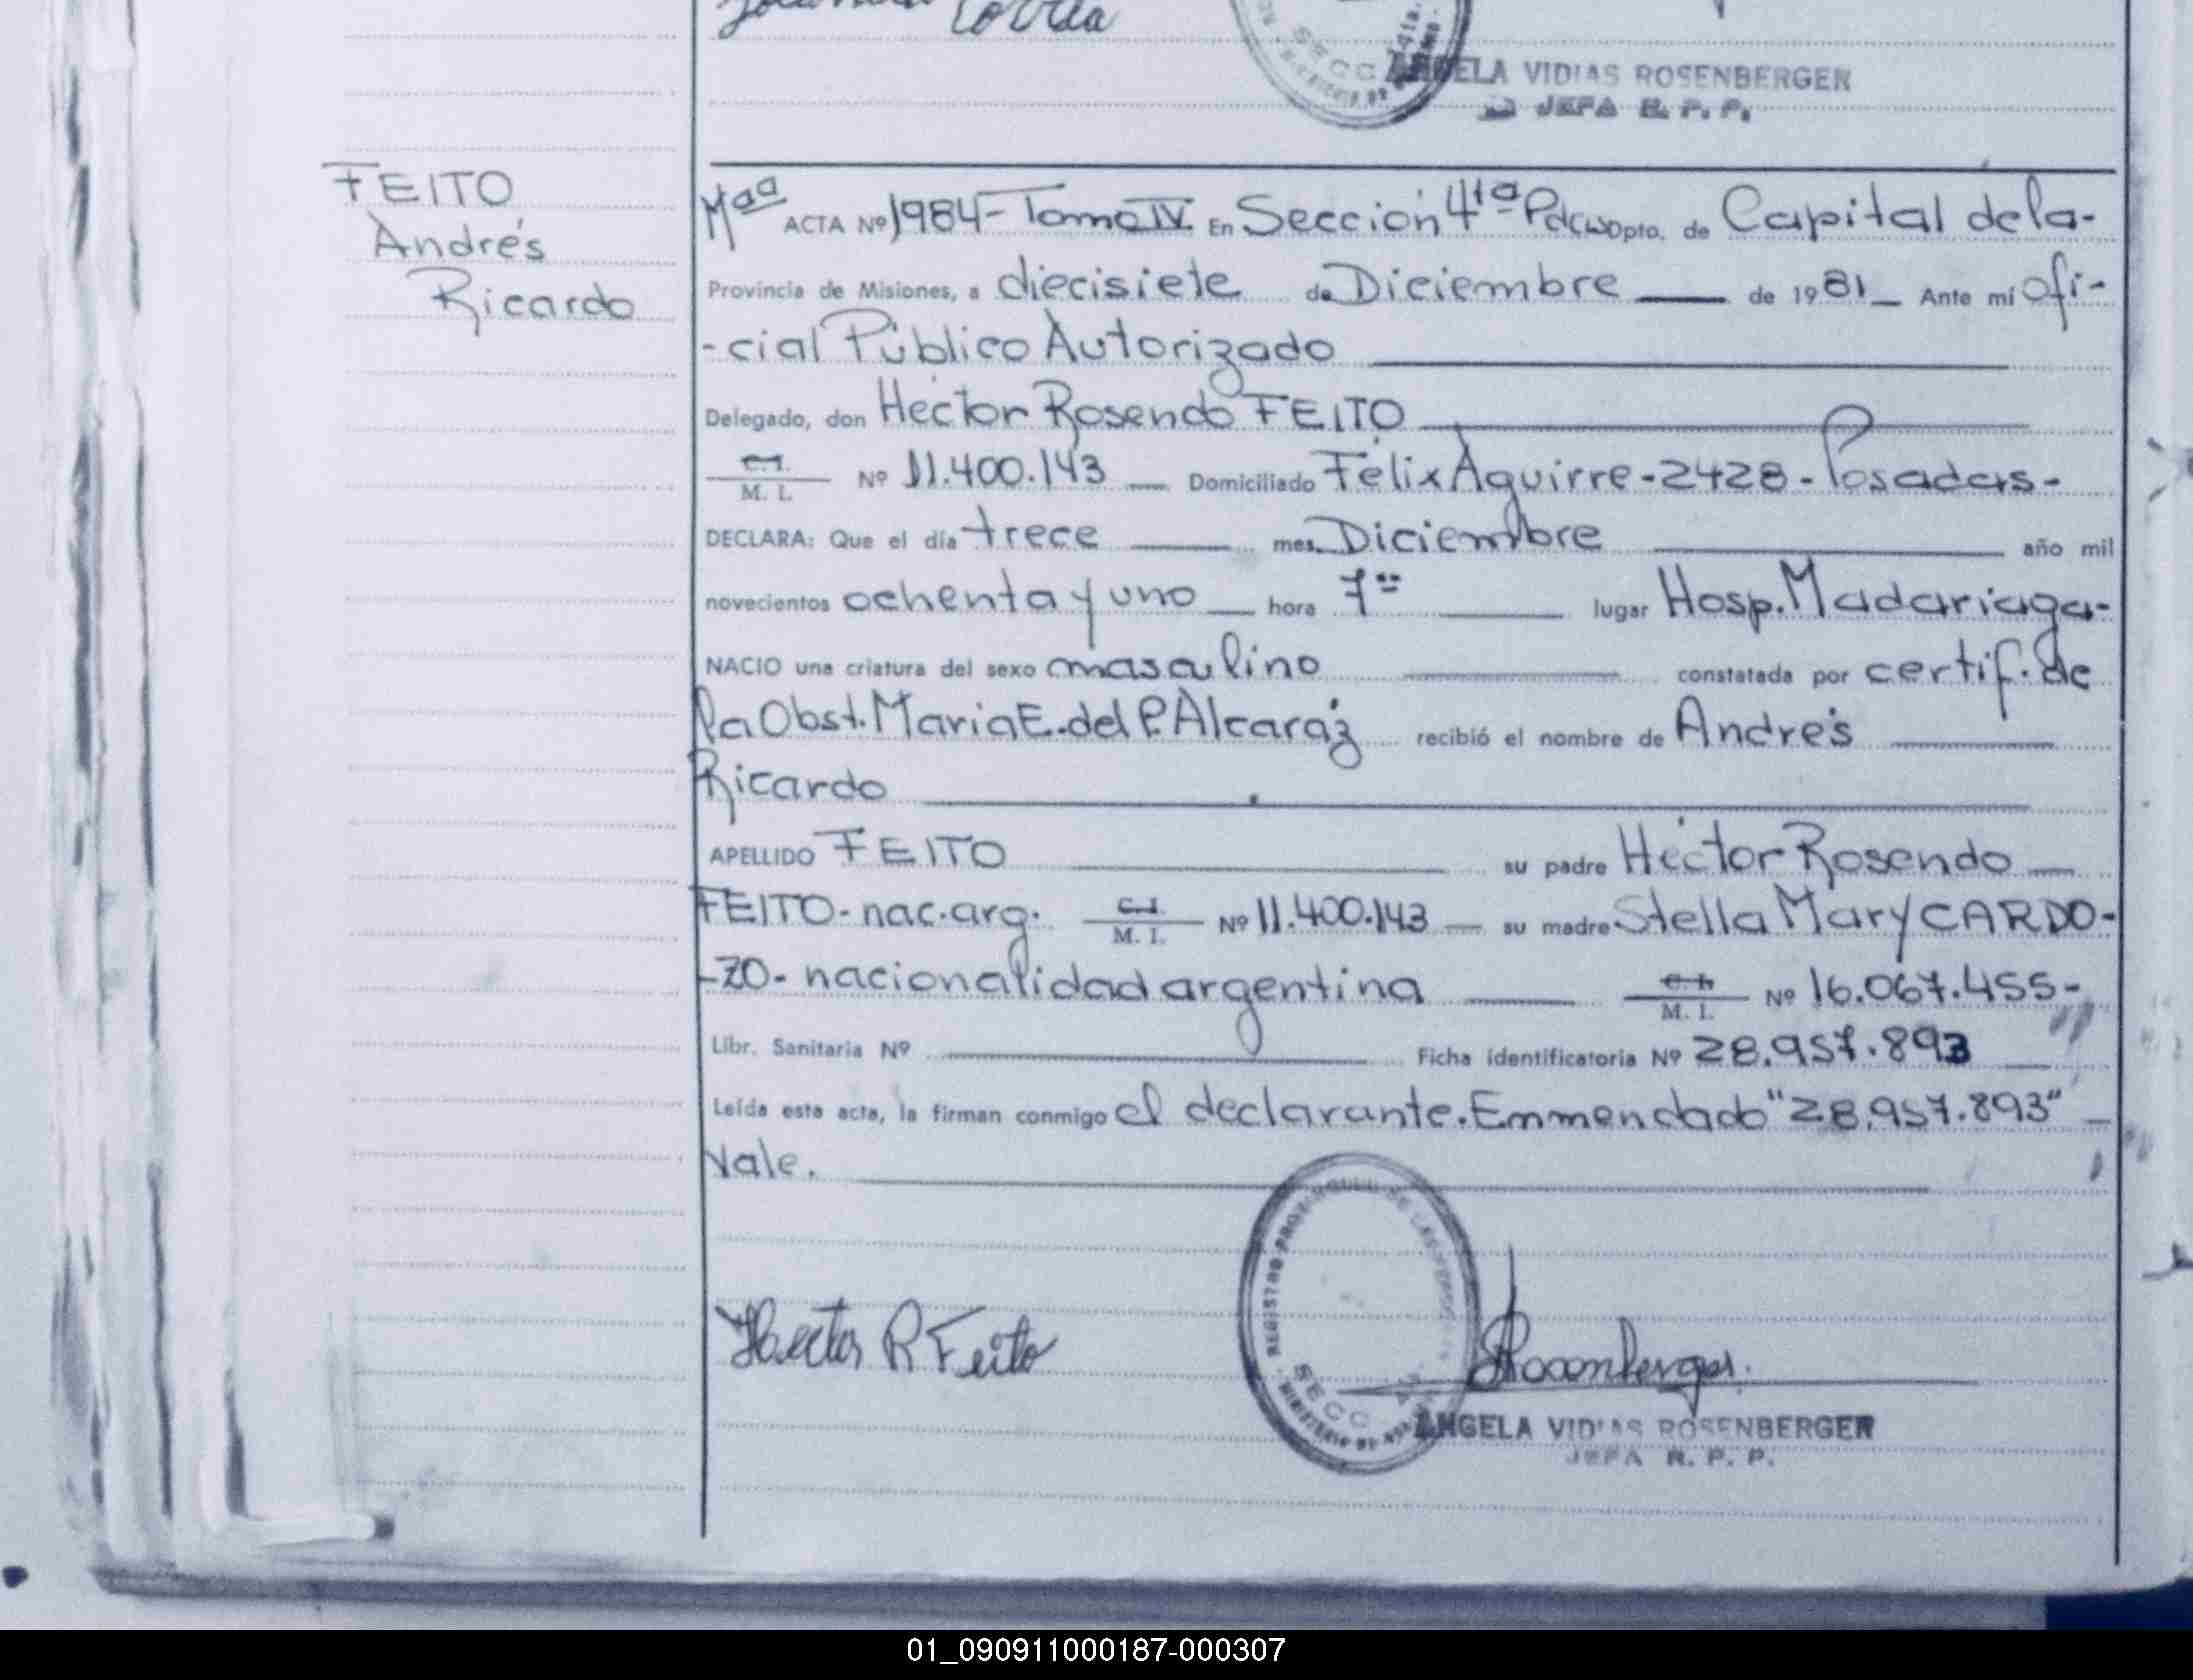 Correa
SECC 4ta.
ANGELA VIDIAS ROSENBERGER
JEFA R. P. P.
FEITO
Andrés
Ricardo
Mªª ACTA Nº 1984-Tomo IV En Sección 4tª Pdas Dpto. de Capital de la-
Provincia de Misiones, a diecisiete de Diciembre de 1981 Ante mí ofi-
-cial Público Autorizado
Delegado, don Héctor Rosendo FEITO
C.I. M. I. Nº 11.400.143 Domiciliado Félix Aguirre-2428-Posadas-
DECLARA: Que el día trece mes Diciembre año mil
novecientos ochenta y uno hora 7 lugar Hosp. Madariaga-
NACIO una criatura del sexo masculino constatada por certif. de
la Obst. Maria E. del P. Alcaráz recibió el nombre de Andrés
Ricardo
APELLIDO FEITO su padre Héctor Rosendo
FEITO- nac. arg. C.I. M. I. Nº 11.400.143 su madre Stella Mary CARDO-
-ZO- nacionalidad argentina C.I. M. I. Nº 16.067.455-
Libr. Sanitaria Nº Ficha identificatoria Nº 28.957.893
Leída esta acta, la firman conmigo el declarante. Emmendado "28.957.893"
Vale.
REGISTRO PROV. DE LAS PERSONAS
SECC
Hector R Feito
Rosenberger.
ANGELA VIDIAS ROSENBERGER
JEFA R. P. P.
01_090911000187-000307